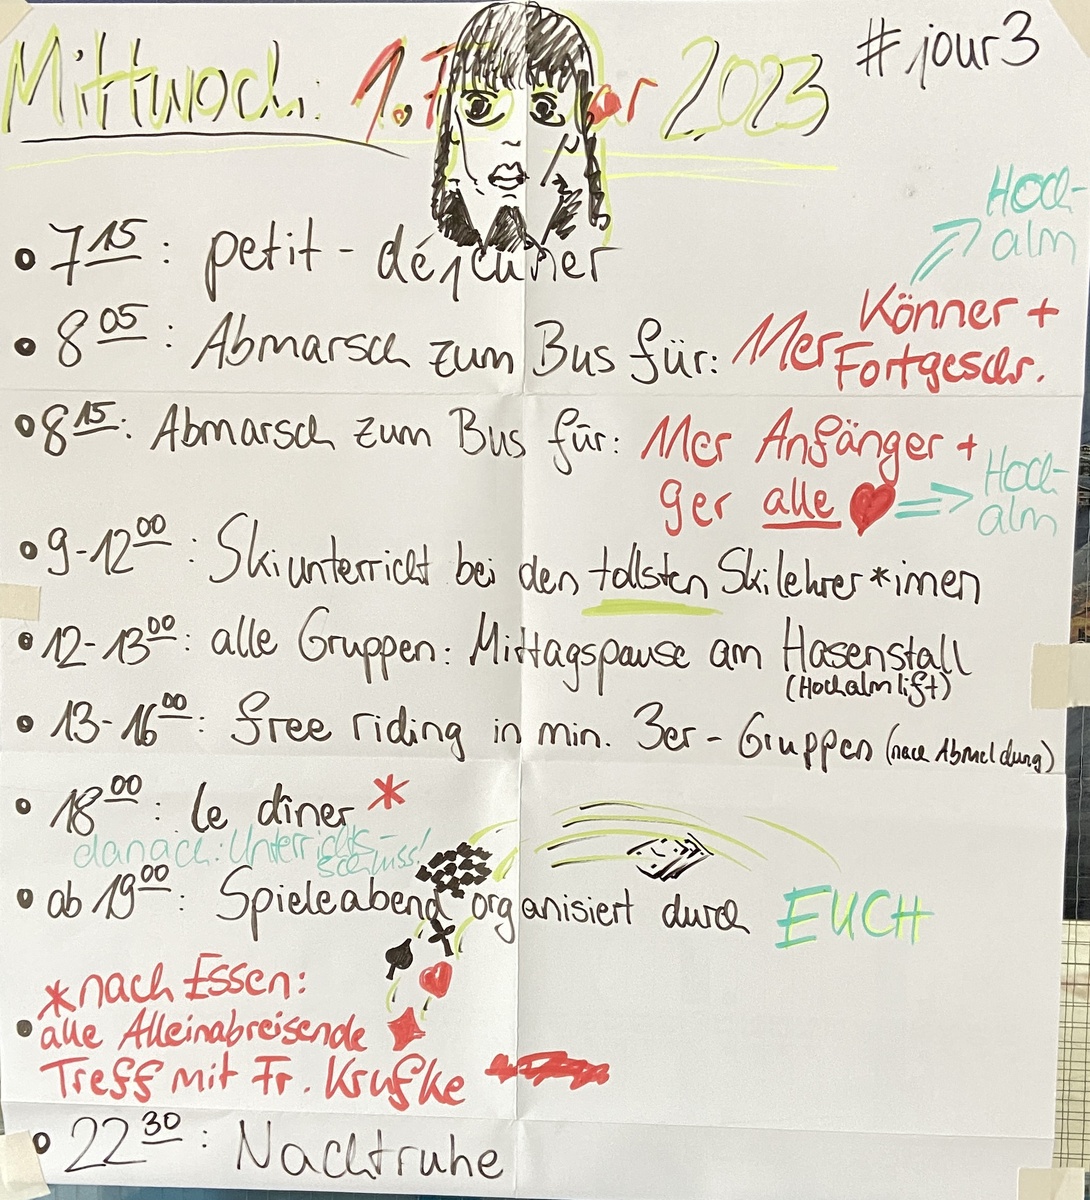 Mittwoch: 1. 2023 #jour3
• 7 15: petit-déjeuner
Hoch-
alm
• 8 05: Abmarsch zum Bus für: Mer Könner +
Fortgeschr.
• 8 15: Abmarsch zum Bus für: Mer Anfänger +
ger alle ♥ => Hoch-
alm
• 9-12 00: Skiunterricht bei den tollsten Skilehrer*innen
• 12-13 00: alle Gruppen: Mittagspause am Hasenstall
(Hochalmlift)
• 13-16 00: free riding in min. 3er-Gruppen (nach Abmeldung)
• 18 00: le dîner *
danach: Unterrichts-
schluss!
• ab 19 00: Spieleabend organisiert durch EUCH
*nach Essen:
• alle Alleinabreisende
Treff mit Fr. Krufke
• 22 30: Nachtruhe